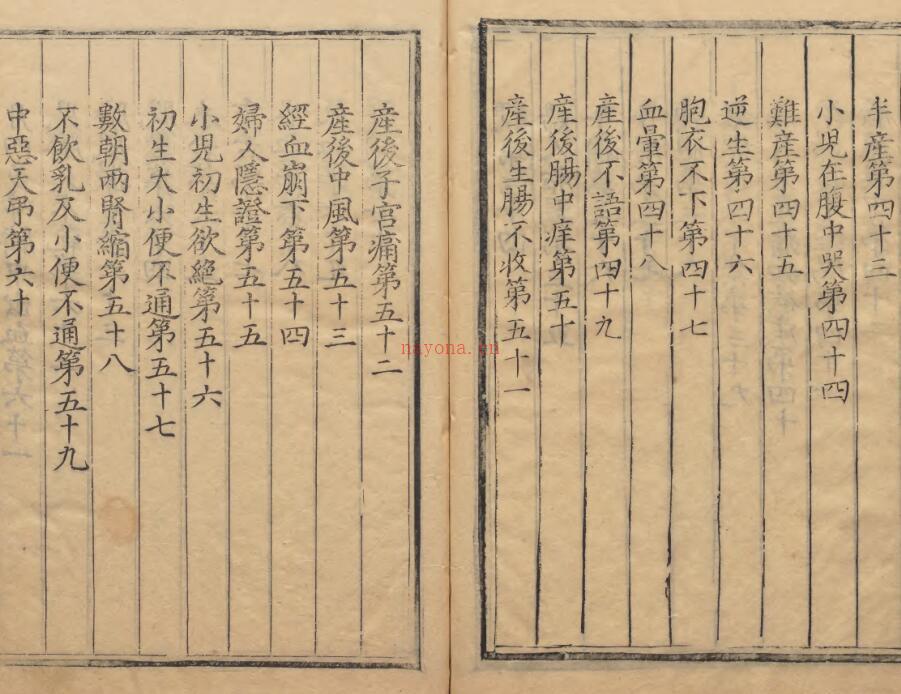 半産第四十三
小兒在腹中哭第四十四
難産第四十五
逆生第四十六
胞衣不下第四十七
血暈第四十八
産後不語第四十九
産後腸中痒第五十
産後生腸不收第五十一
産後子宮痛第五十二
産後中風第五十三
經血崩下第五十四
婦人隱證第五十五
小兒初生欲絶第五十六
初生大小便不通第五十七
數朝兩腎縮第五十八
不飲乳及小便不通第五十九
中惡天吊第六十
nayona.cn